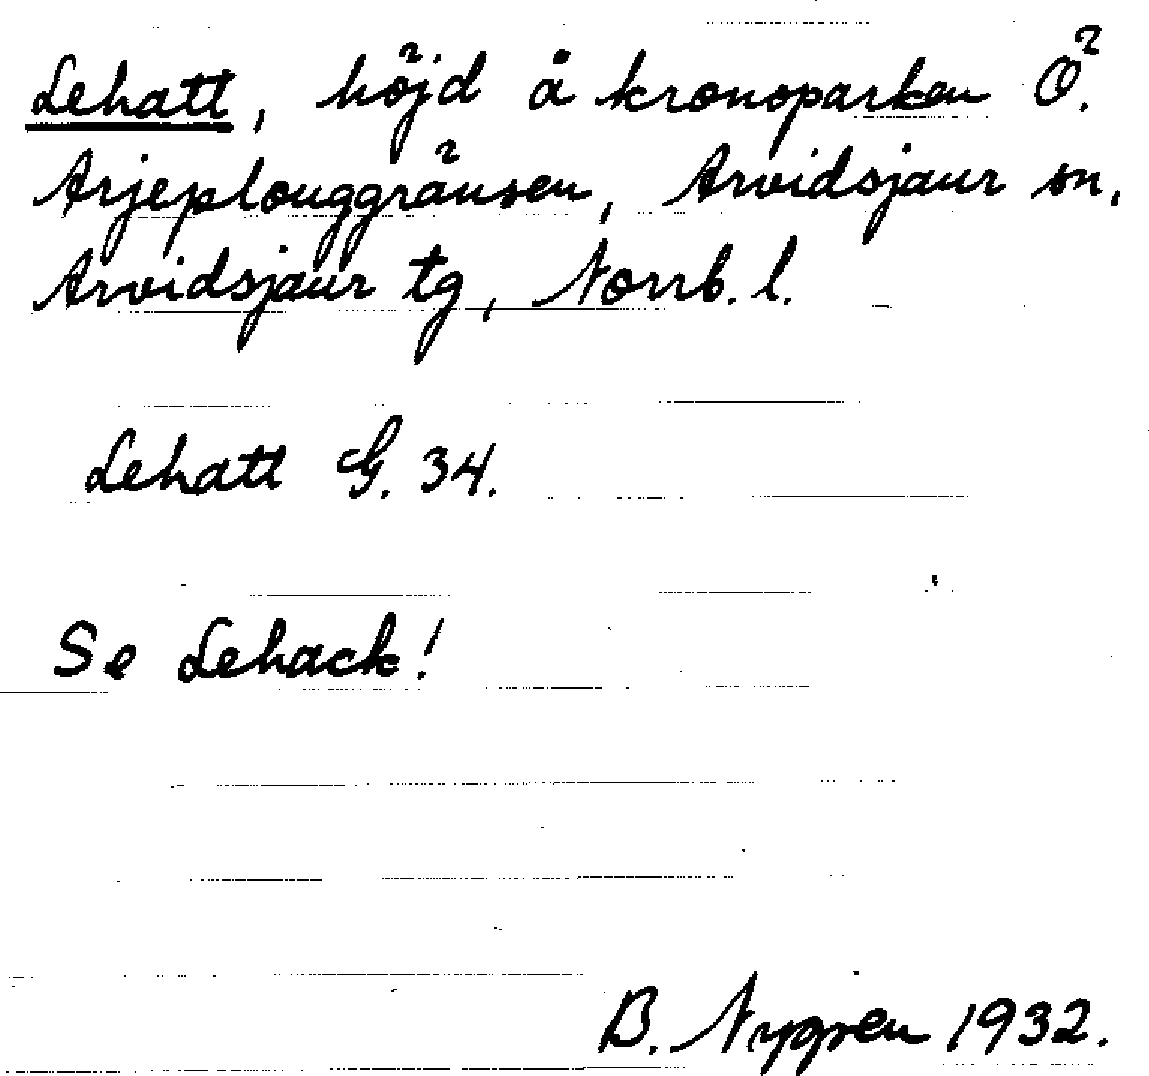 Lehatt, höjd å kronoparken Ö.
Arjeplouggränsen, Arvidsjaur sn,
Arvidsjaur tg, Norrb. l.
Lehatt G. 34.
Se Lehack!
B. Nygren 1932.